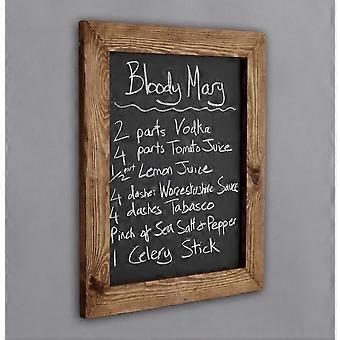 Bloody Mary
2 parts Vodka
4 parts Tomato Juice
1/2 part Lemon Juice
4 dashes Worcestershire Sauce
4 dashes Tabasco
Pinch of Sea Salt & Pepper
1 Celery Stick